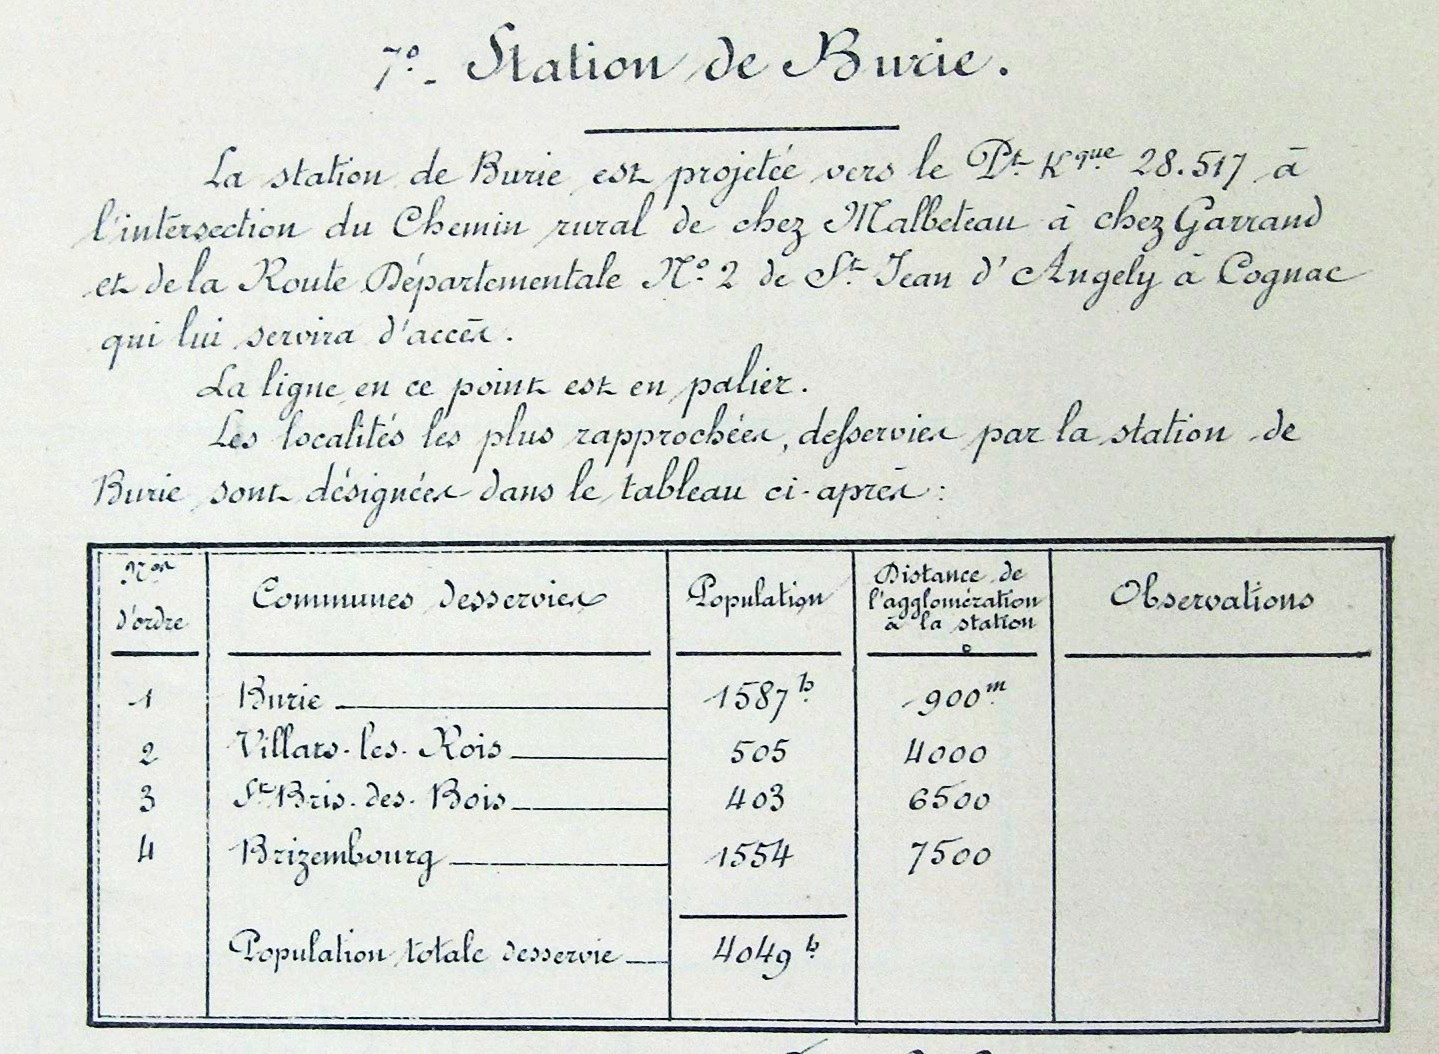 7º_ Station de Burie.
La station de Burie est projetée vers le Pt. Kque 28.517 à
l'intersection du Chemin rural de chez Malbeteau à chez Garraud
et de la Route Départementale Nº 2 de St. Jean d'Angely à Cognac
qui lui servira d'accès.
La ligne en ce point est en palier.
Les localités les plus rapprochées, desservies par la station de
Burie sont désignées dans le tableau ci-après :
Nos d'ordre Communes desservies Population Distance de l'agglomération à la station Observations
1 Burie 1587 h. 900 m.
2 Villars-les-Rois 505 4000
3 St Bris-des-Bois 403 6500
4 Brizembourg 1554 7500
Population totale desservie 4049 h.